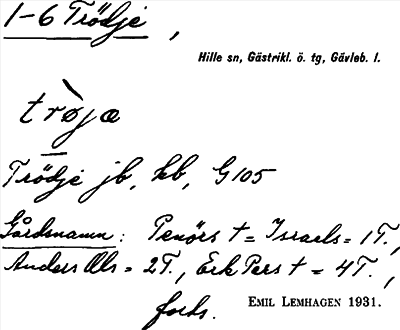 1-6 Trödje,
Hille sn, Gästrikl. ö. tg, Gävleb. l.
trø̀jæ
Trödje jb, kb, G105
Gårdsnamn: Penörs t = Israels = 1T.,
Anders Ols = 2T., Erk Pers t = 4T.,
forts.
EMIL LEMHAGEN 1931.